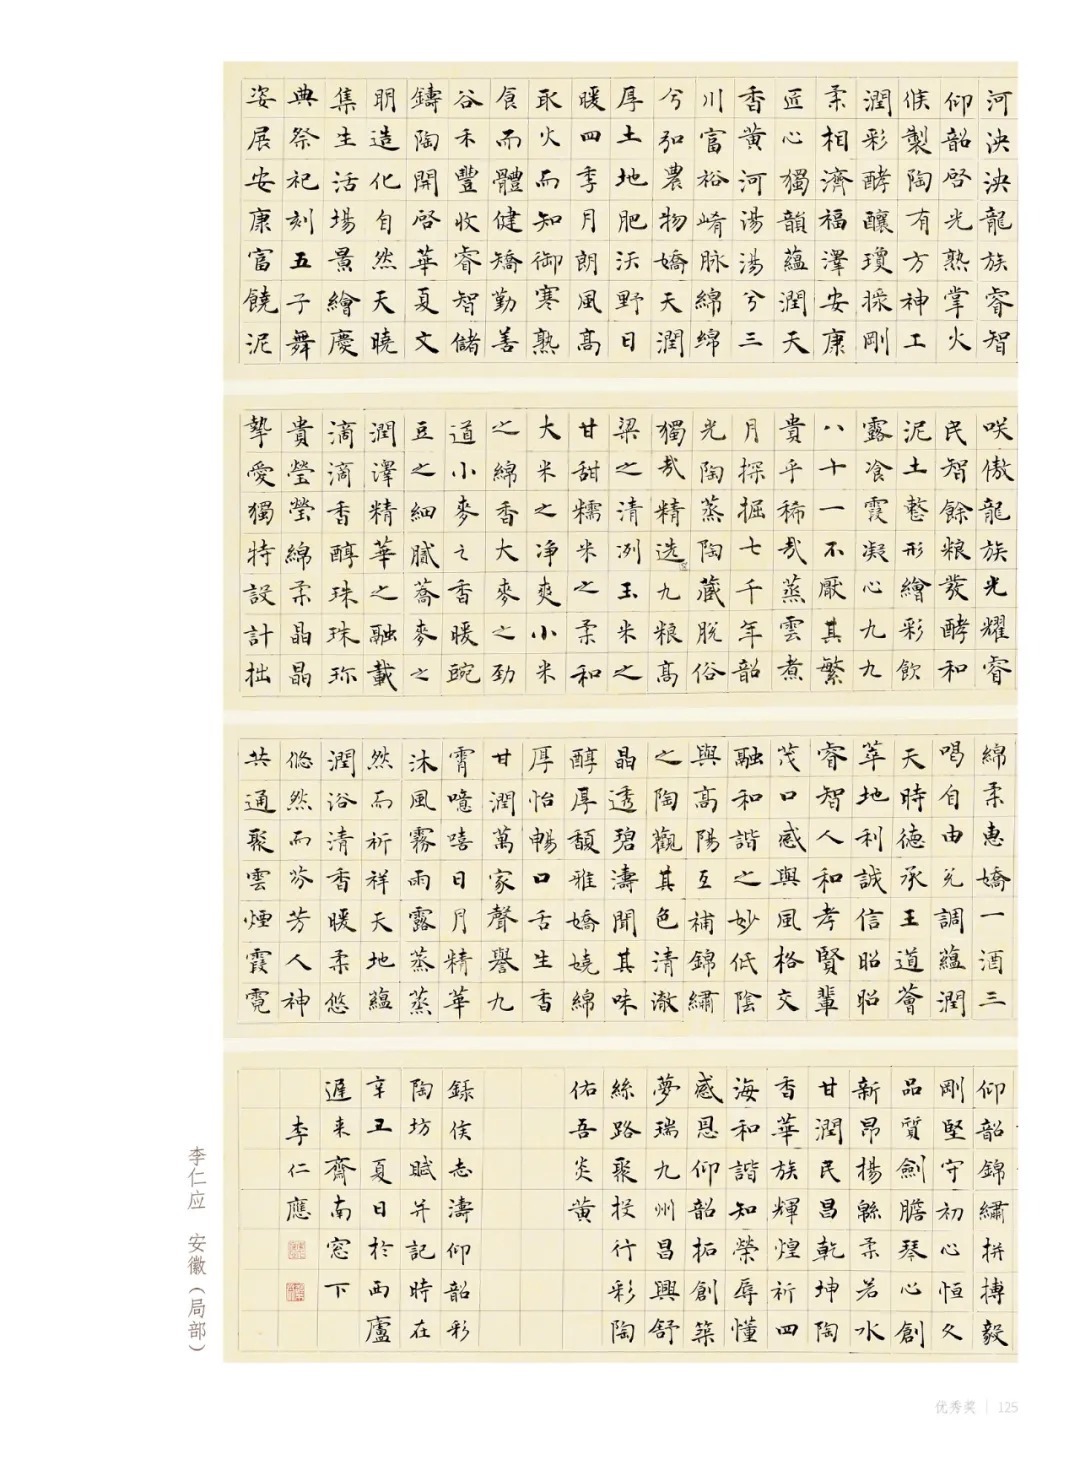 河泱泱龍族睿智
仰韶啓光熟掌火
候製陶有方神工
潤彩酵釀瓊漿剛
柔相濟福澤安康
匠心獨韻蘊潤天
香黄河湯湯兮三
川富裕崤脉綿綿
兮弘農物嬌天潤
厚土地肥沃野日
暖四季月朗風高
取火而知御寒熟
食而體健矯勤善
谷禾豐收睿智儲
鑄陶開啓華夏文
明造化自然天曉
集生活場景繪慶
典祭祀刻五子舞
姿展安康富饒泥
咲傲龍族光耀睿
民智餘粮發酵和
泥土整形繪彩飲
露飡霞凝心九九
八十一不厭其繁
貴乎稀哉蒸雲煮
月探掘七千年韶
光陶蒸陶藏脱俗
獨哉精选九粮高
梁之清洌玉米之
甘甜糯米之柔和
大米之净爽小米
之綿香大麥之勁
道小麥之香暖豌
豆之細膩蕎麥之
潤澤精華之融載
滴滴香醇珠珠珎
貴瑩瑩綿柔晶晶
摯愛獨特設計拙
綿柔惠嬌一酒三
喝自由兑調蘊潤
天時德承王道薈
萃地利誠信昭昭
睿智人和孝賢輩
茂口感與風格交
融和諧之妙低陰
與高陽互補錦繡
之陶觀其色清澈
晶透碧濤聞其味
醇厚馥雅嬌嬈綿
厚怡暢口舌生香
甘潤萬家聲譽九
霄噫嘻日月精華
沐風霧雨露蒸蒸
然而祈祥天地蘊
潤浴清香暖柔悠
悠然而芬芳人神
共通聚雲煙霞霓
仰韶錦繡拼搏毅
剛堅守初心恒久
品質劍膽琴心創
新昂揚緜柔若水
甘潤民昌乾坤陶
香華族輝煌祈四
海和諧知榮辱懂
感恩仰韶拓創築
夢瑞九州昌興舒
絲路聚投行彩陶
佑吾炎黄
録侯志濤仰韶彩
陶坊賦并記時在
辛丑夏日於西廬
遲来齋南窓下
李仁應
李仁应 安徽（局部）
优秀奖 | 125